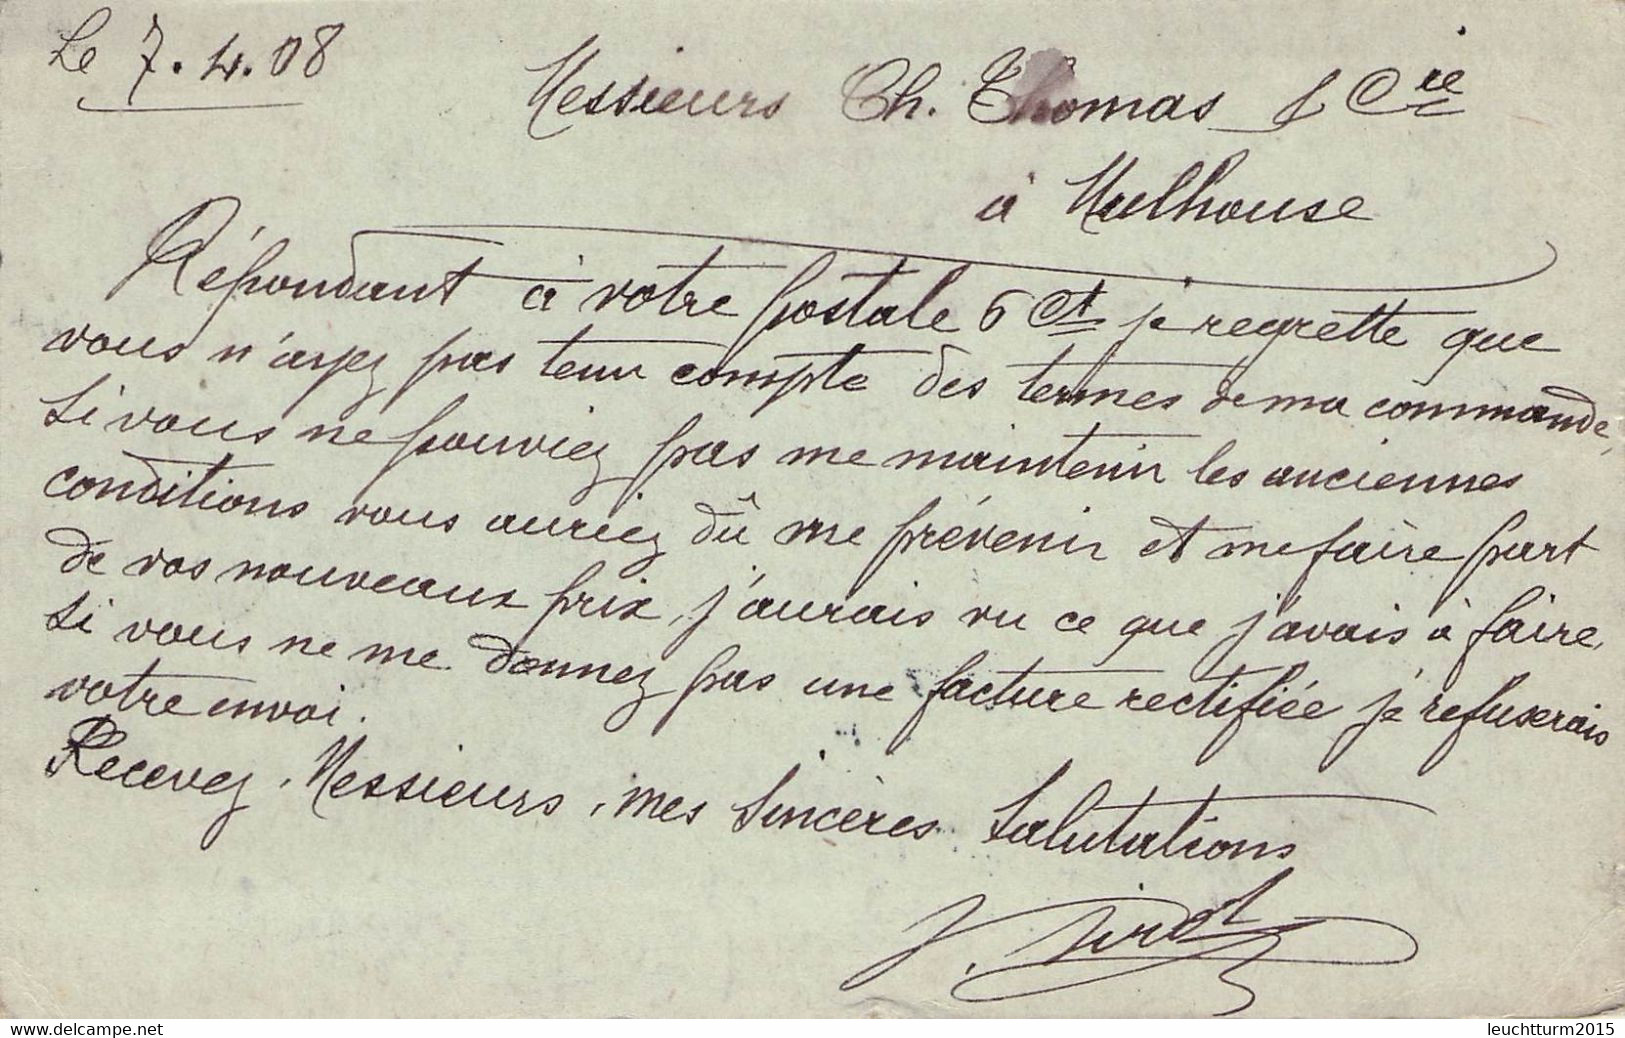 Le 7.4.08
Messieurs Ch. Thomas & Cie
à Mulhouse
Répondant à votre postale 6 Ct je regrette que
vous n'ayez pas tenu compte des termes de ma commande,
si vous ne pouviez pas me maintenir les anciennes
conditions vous auriez dû me prévenir et me faire part
de vos nouveaux prix, j'aurais vu ce que j'avais à faire,
si vous ne me donnez pas une facture rectifiée je refuserais
votre envoi.
Recevez, Messieurs, mes sincères salutations
leuchtturm2015